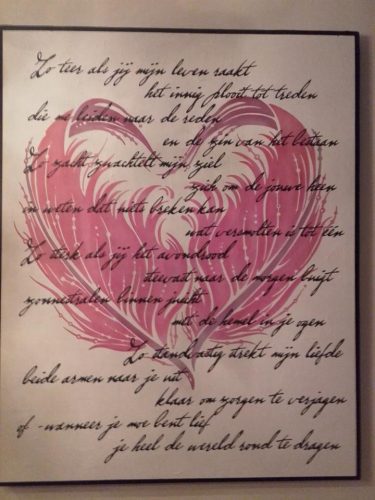 Zo teer als jij mijn leven raakt
het innig plooit tot treden
die me leiden naar de reden
en de zin van het bestaan
Zo zacht zwachtelt mijn ziel
zich om de jouwe heen
in weten dat niets breken kan
wat versmolten is tot één
Zo sterk als jij het avondrood
steevast naar de morgen buigt
zonnestralen binnen juicht
met de hemel in je ogen
Zo standvastig strekt mijn liefde
beide armen naar je uit
klaar om zorgen te verjagen
of - wanneer je moe bent lief
je heel de wereld rond te dragen